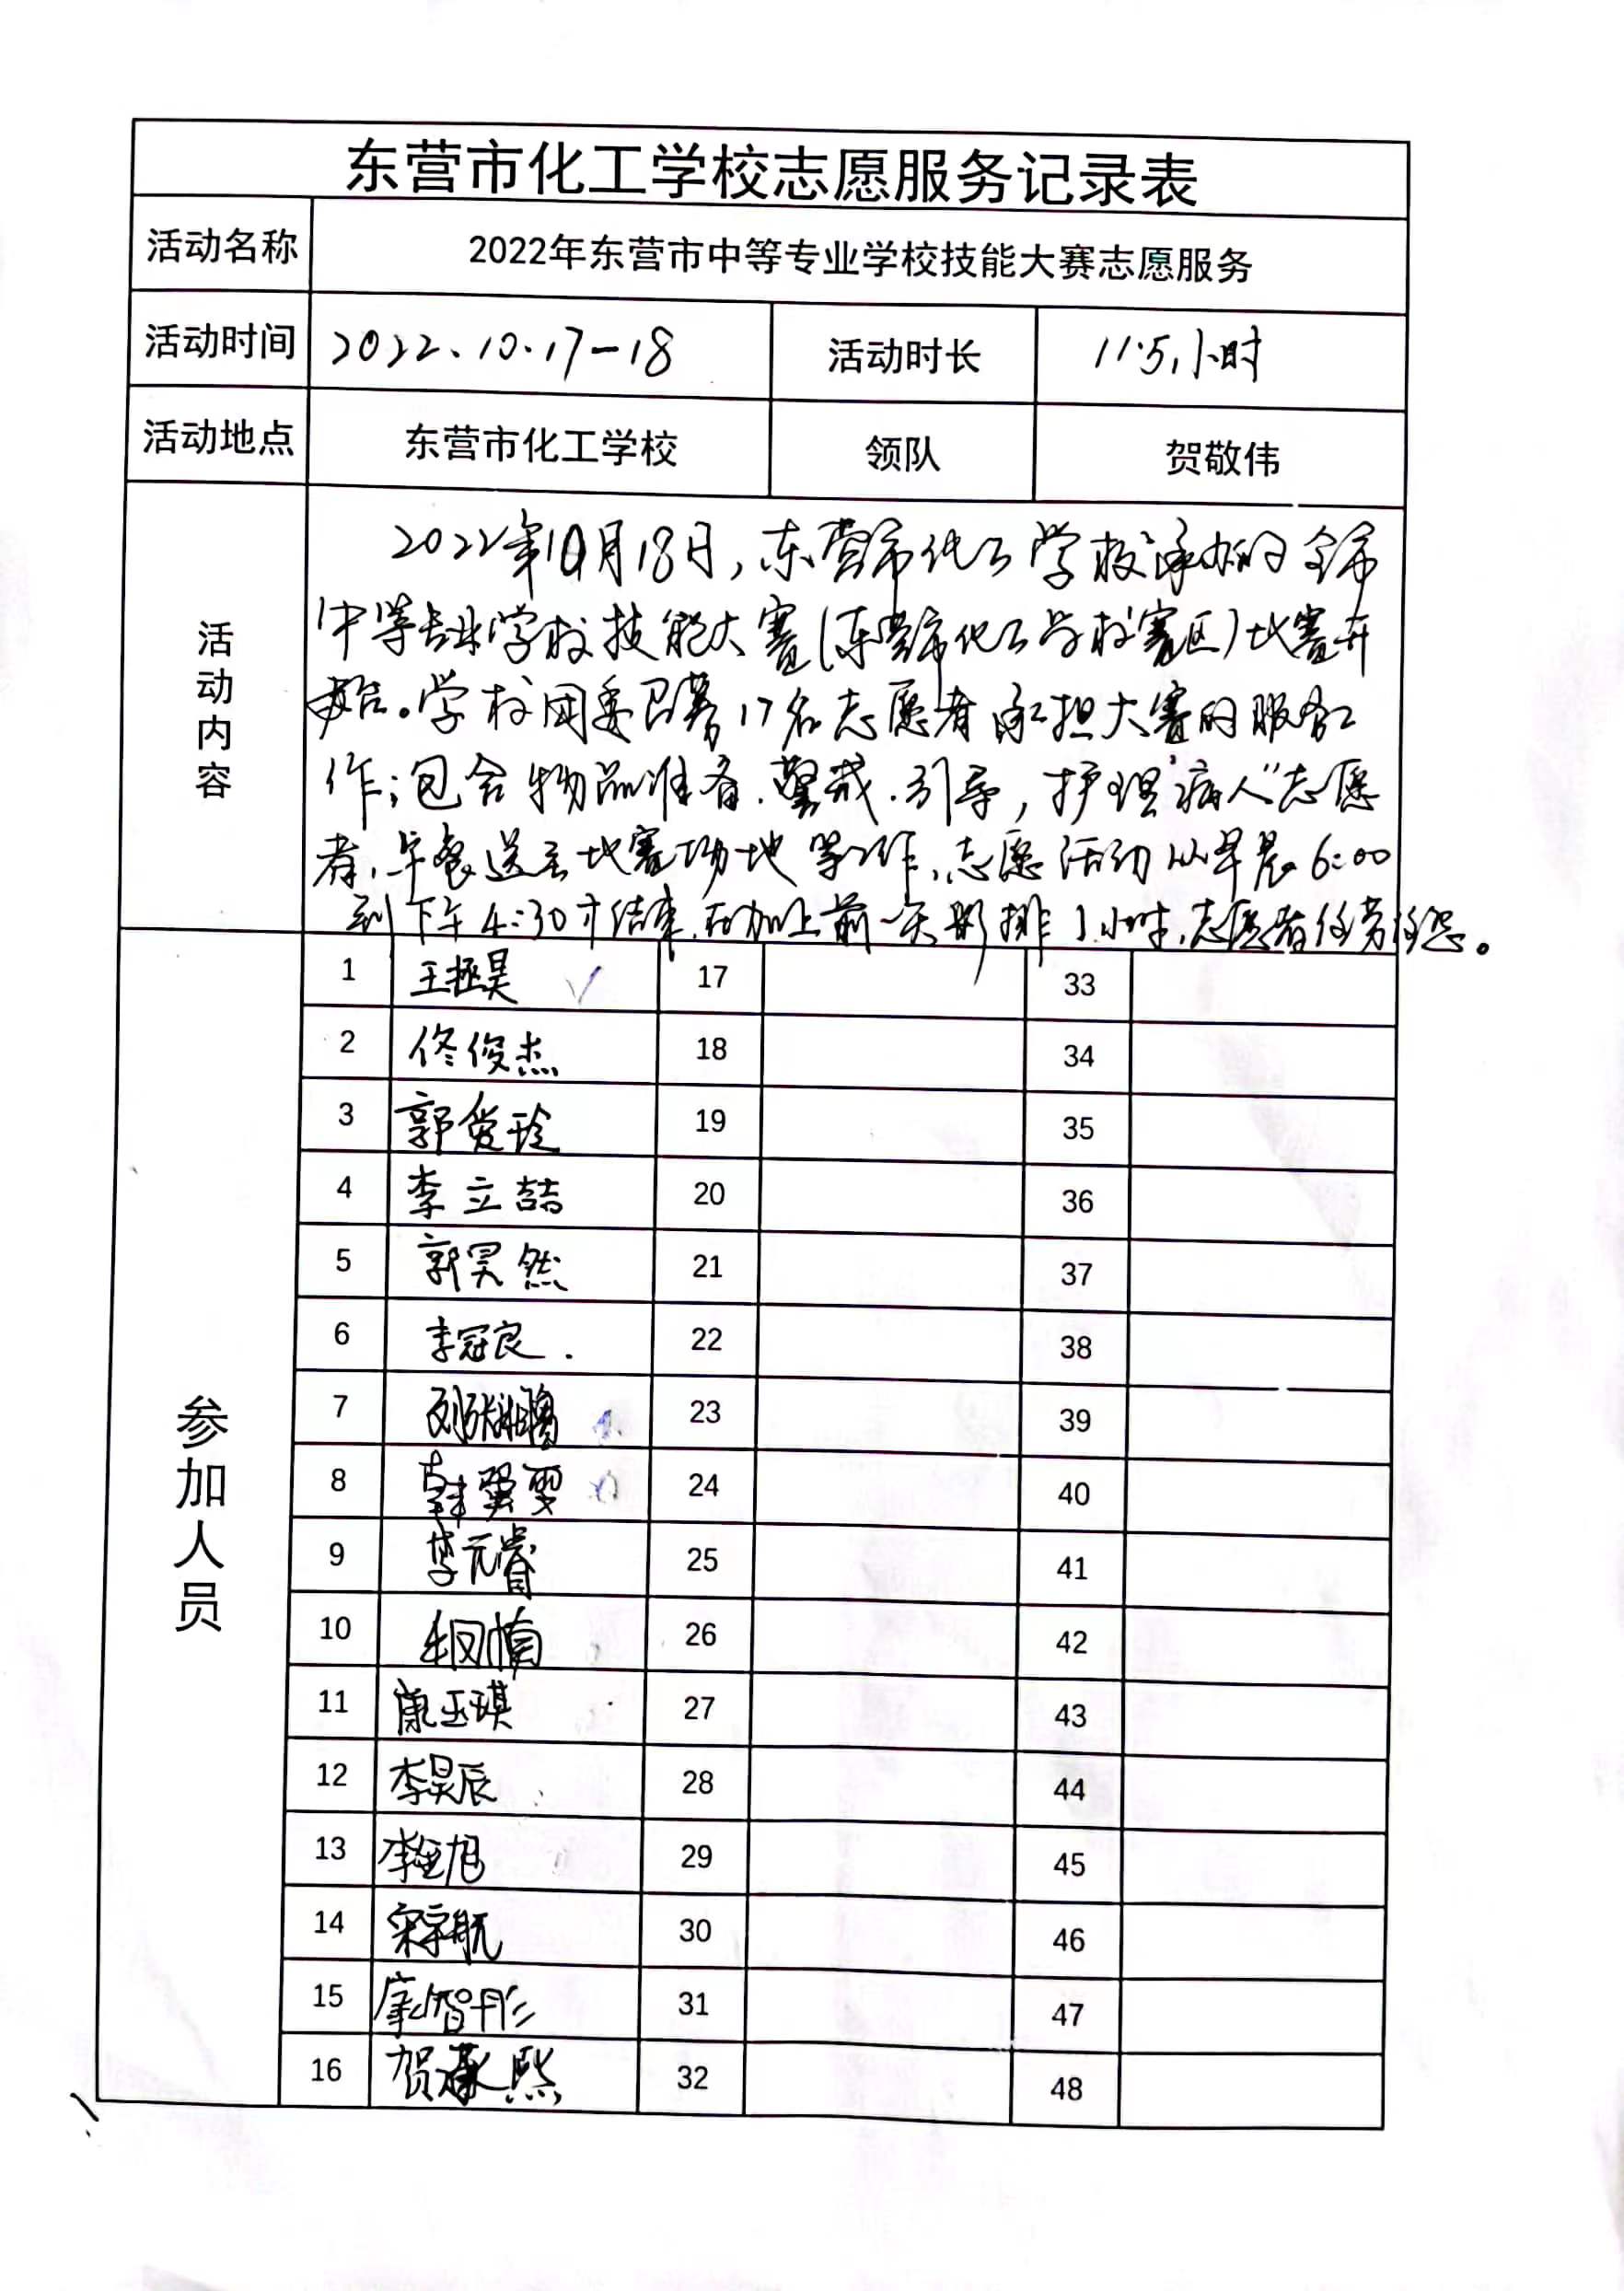 东营市化工学校志愿服务记录表
活动名称 2022年东营市中等专业学校技能大赛志愿服务
活动时间 2022.10.17-18 活动时长 11.5小时
活动地点 东营市化工学校 领队 贺敬伟
活动内容
2022年10月18日,东营市化工学校承办的全市
中等专业学校技能大赛(东营市化工学校赛区)比赛开
始。学校团委召募17名志愿者承担大赛的服务工
作;包含物品准备.警戒.引导,护理"病人"志愿
者,午餐送至比赛场地等工作,志愿活动从早晨6:00
到下午4:30才结束,再加上前一天彩排1小时,志愿者任劳任怨。
参加人员
1 王拯昊 17 33
2 佟俊杰 18 34
3 郭爱玲 19 35
4 李立喆 20 36
5 郭昊然 21 37
6 李冠良 22 38
7 23 39
8 韩 24 40
9 李元睿 25 41
10 26 42
11 康玉琪 27 43
12 李昊辰 28 44
13 李 旭 29 45
14 宋宇航 30 46
15 康智彤 31 47
16 贺承熙 32 48